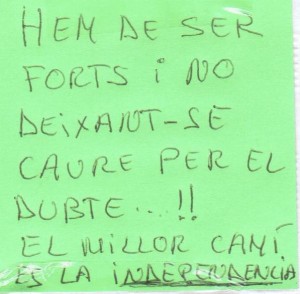 HEM DE SER
FORTS i NO
DEiXANT-SE
CAURE PER EL
DUBTE...!!
EL MILLOR CAMÍ
ES LA INDEPENDENCIA